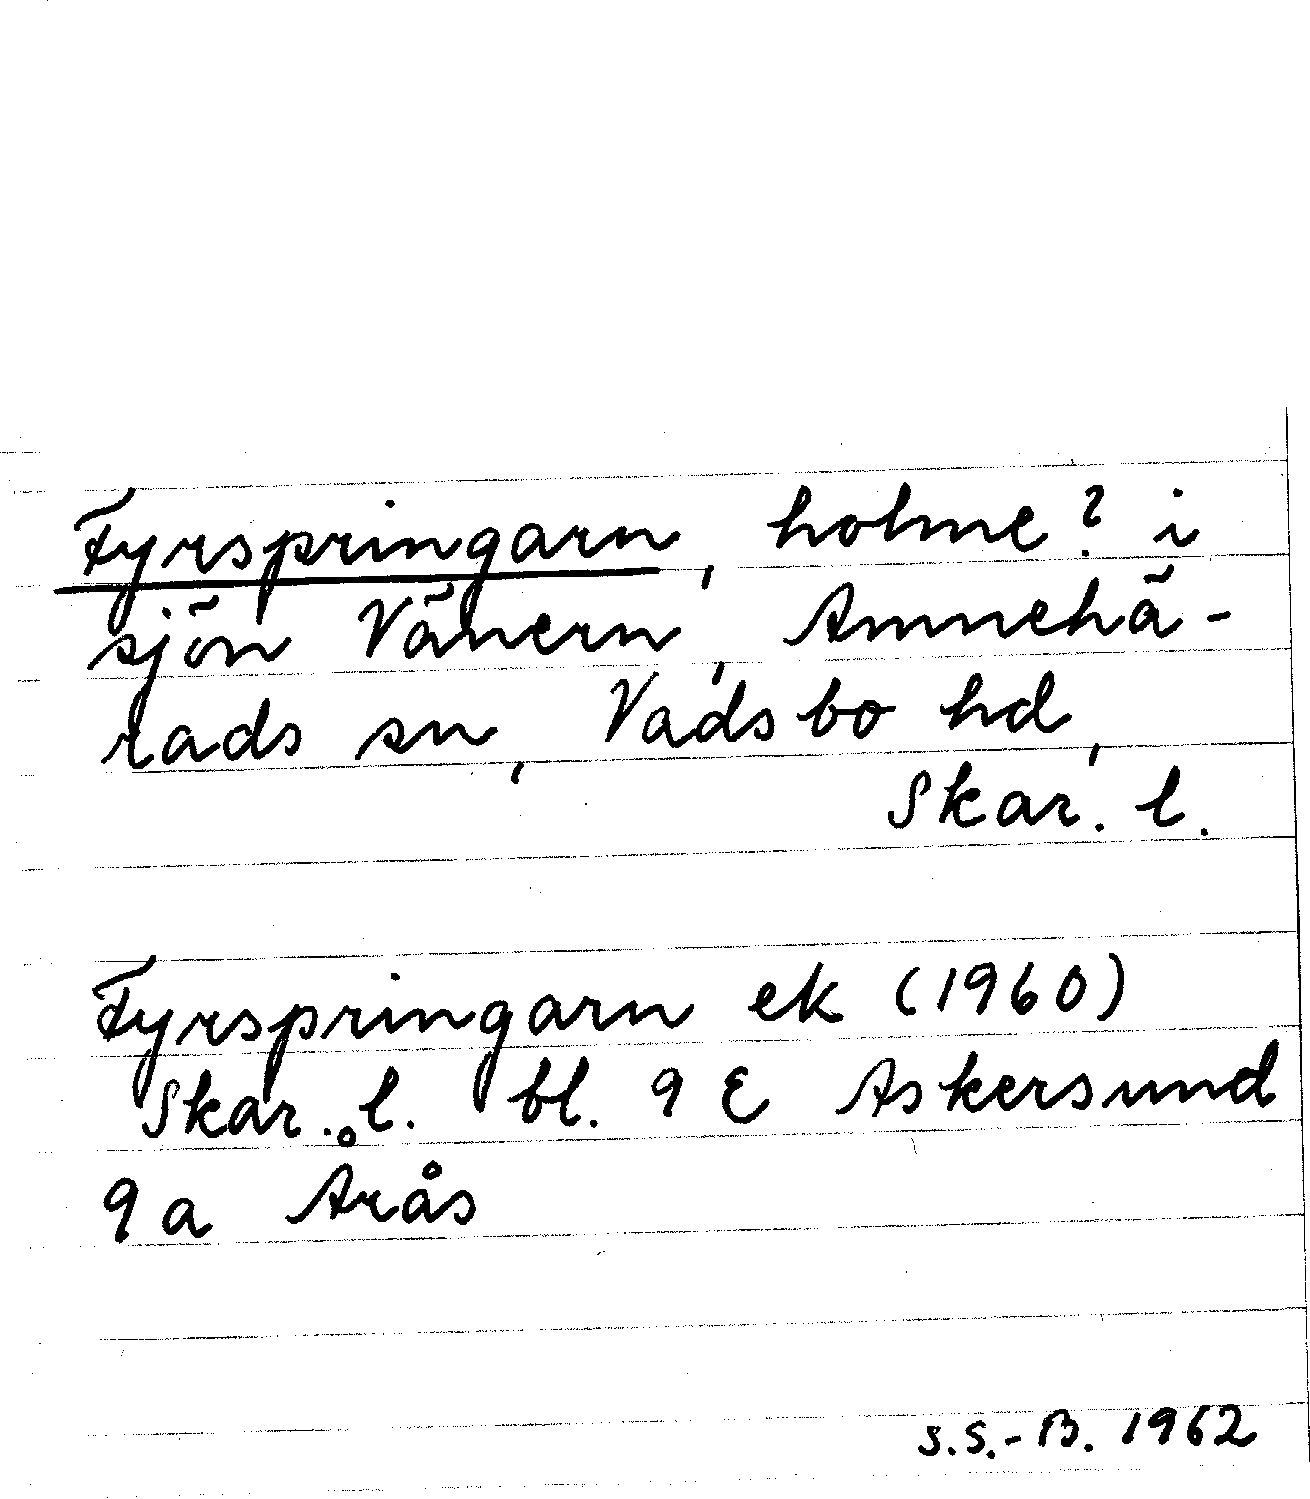 Fyrspringarn, holme? i
sjön Vänern, Amnehä-
rads sn, Vadsbo hd,
Skar. l.
Fyrspringarn ek (1960)
Skar. l. bl. 9 E Askersund
9 a Årås
S.S.-B. 1962